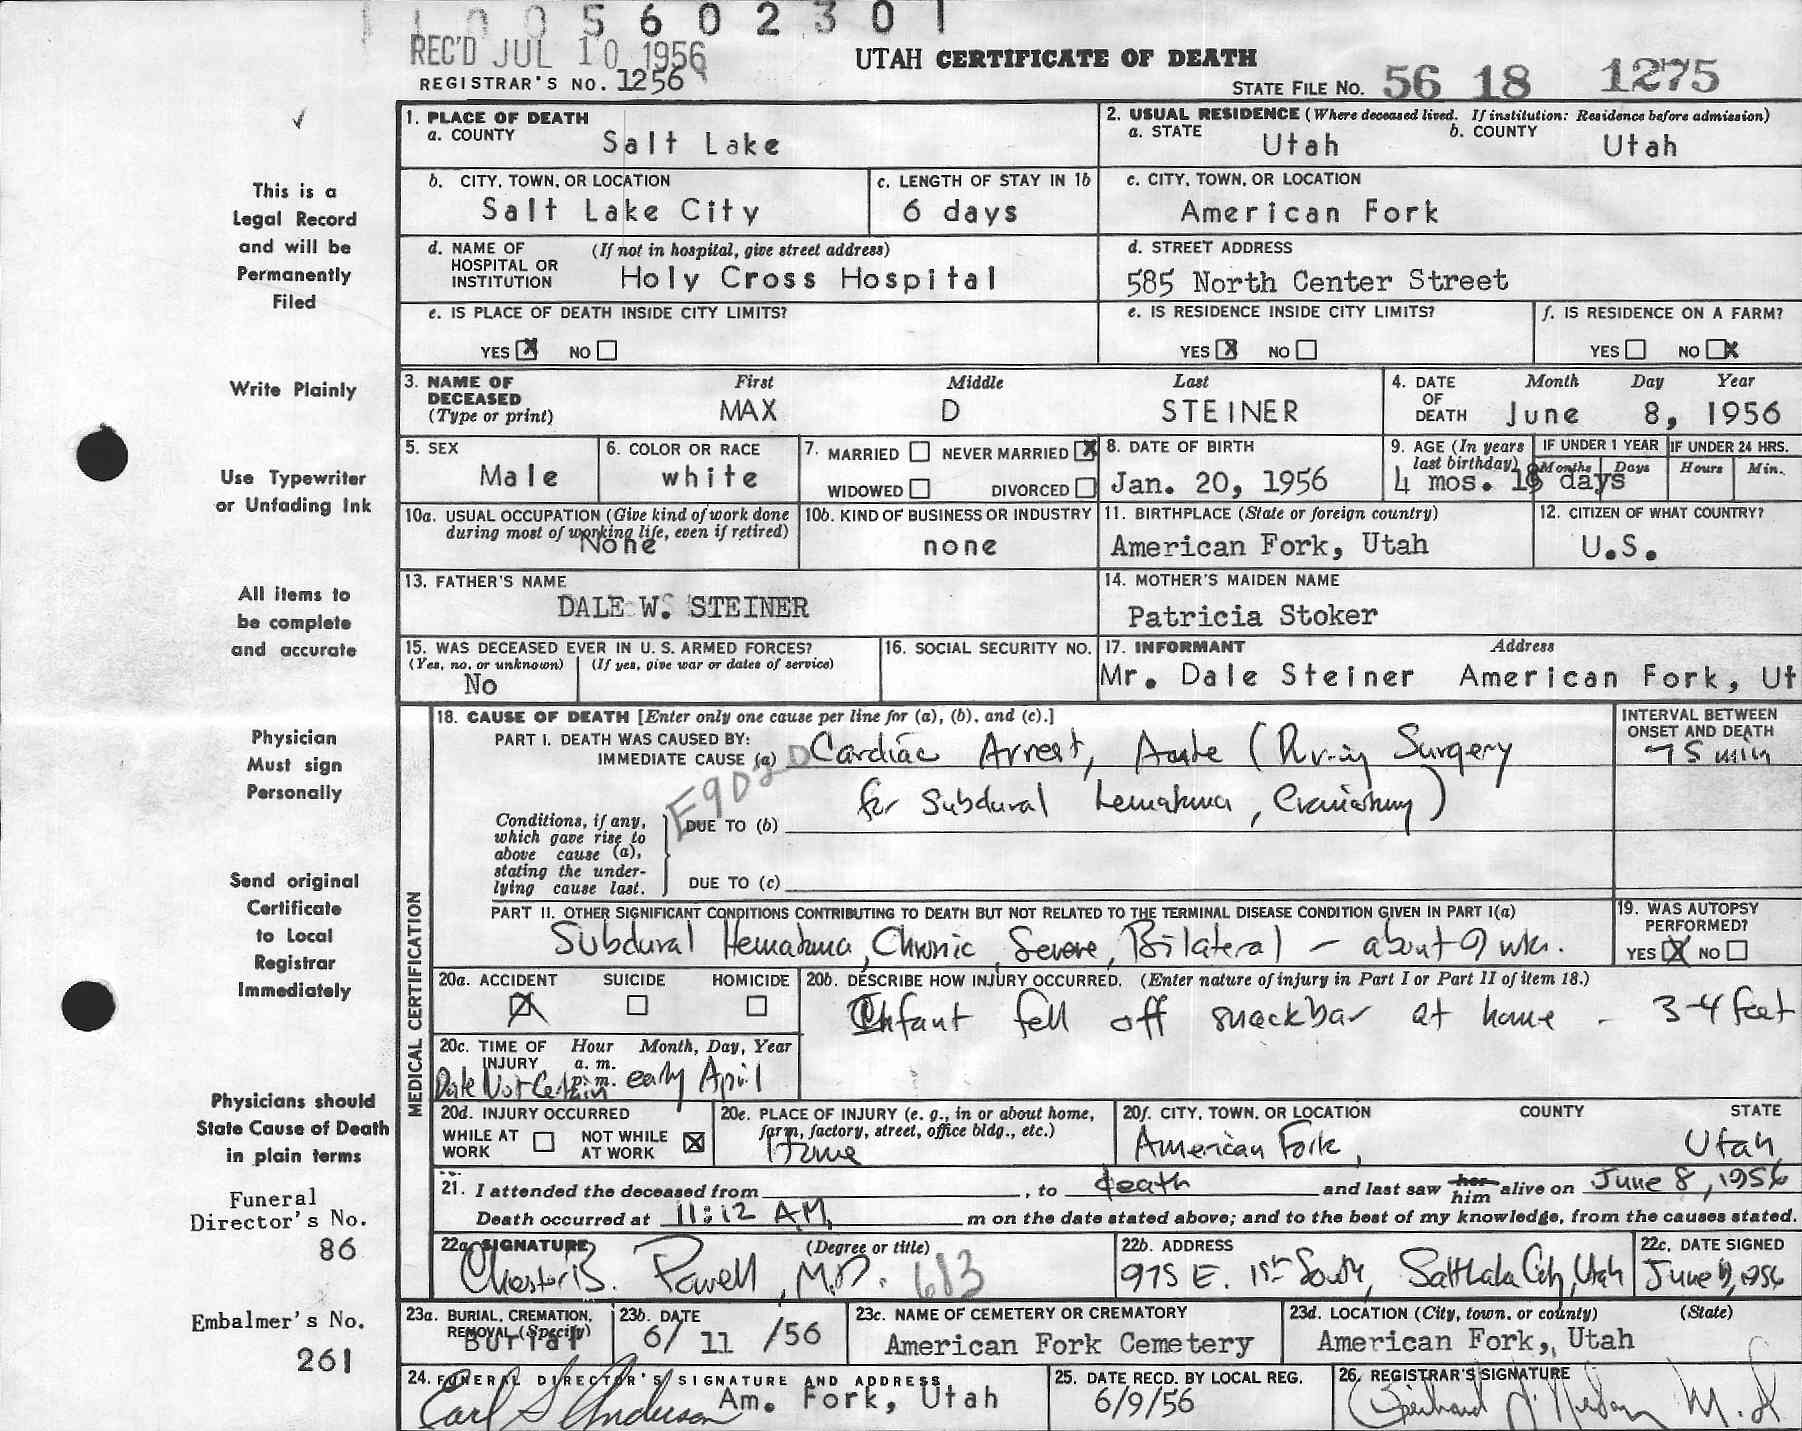 1 0 0 5 6 0 2 3 0 1
REC'D JUL 10 1956
UTAH CERTIFICATE OF DEATH
REGISTRAR'S NO. 1256
STATE FILE NO. 56 18 1275
This is a
Legal Record
and will be
Permanently
Filed
Write Plainly
Use Typewriter
or Unfading Ink
All items to
be complete
and accurate
Physician
Must sign
Personally
Send original
Certificate
to Local
Registrar
Immediately
Physicians should
State Cause of Death
in plain terms
Funeral
Director's No.
86
Embalmer's No.
261
1. PLACE OF DEATH
a. COUNTY Salt Lake
2. USUAL RESIDENCE (Where deceased lived. If institution: Residence before admission)
a. STATE Utah b. COUNTY Utah
b. CITY, TOWN, OR LOCATION
Salt Lake City
c. LENGTH OF STAY IN 1b
6 days
c. CITY, TOWN, OR LOCATION
American Fork
d. NAME OF HOSPITAL OR INSTITUTION (If not in hospital, give street address)
Holy Cross Hospital
d. STREET ADDRESS
585 North Center Street
e. IS PLACE OF DEATH INSIDE CITY LIMITS?
YES X NO
e. IS RESIDENCE INSIDE CITY LIMITS?
YES X NO
f. IS RESIDENCE ON A FARM?
YES NO X
3. NAME OF DECEASED (Type or print)
First Middle Last
MAX D STEINER
4. DATE OF DEATH Month Day Year
June 8, 1956
5. SEX
Male
6. COLOR OR RACE
white
7. MARRIED NEVER MARRIED X
WIDOWED DIVORCED
8. DATE OF BIRTH
Jan. 20, 1956
9. AGE (In years last birthday) IF UNDER 1 YEAR IF UNDER 24 HRS.
Months Days Hours Min.
4 mos. days
10a. USUAL OCCUPATION (Give kind of work done during most of working life, even if retired)
None
10b. KIND OF BUSINESS OR INDUSTRY
none
11. BIRTHPLACE (State or foreign country)
American Fork, Utah
12. CITIZEN OF WHAT COUNTRY?
U.S.
13. FATHER'S NAME
DALE W. STEINER
14. MOTHER'S MAIDEN NAME
Patricia Stoker
15. WAS DECEASED EVER IN U. S. ARMED FORCES?
(Yes, no, or unknown) (If yes, give war or dates of service)
No
16. SOCIAL SECURITY NO.
17. INFORMANT Address
Mr. Dale Steiner American Fork, Ut
MEDICAL CERTIFICATION
18. CAUSE OF DEATH [Enter only one cause per line for (a), (b), and (c).]
INTERVAL BETWEEN ONSET AND DEATH
PART I. DEATH WAS CAUSED BY:
IMMEDIATE CAUSE (a) Cardiac Arrest, Acute (During Surgery
75 min
for Subdural Hematoma, Craniotomy)
E902 D
Conditions, if any, which gave rise to above cause (a), stating the underlying cause last.
DUE TO (b)
DUE TO (c)
PART II. OTHER SIGNIFICANT CONDITIONS CONTRIBUTING TO DEATH BUT NOT RELATED TO THE TERMINAL DISEASE CONDITION GIVEN IN PART I(a)
Subdural Hematoma, Chronic, Severe, Bilateral - about 9 wks.
19. WAS AUTOPSY PERFORMED?
YES X NO
20a. ACCIDENT SUICIDE HOMICIDE
X
20b. DESCRIBE HOW INJURY OCCURRED. (Enter nature of injury in Part I or Part II of item 18.)
Infant fell off snackbar at home - 3-4 feet
20c. TIME OF INJURY Hour Month, Day, Year
a. m.
p. m.
Date Not Certain early April
20d. INJURY OCCURRED
WHILE AT WORK NOT WHILE AT WORK X
20e. PLACE OF INJURY (e. g., in or about home, farm, factory, street, office bldg., etc.)
Home
20f. CITY, TOWN, OR LOCATION COUNTY STATE
American Fork, Utah
21. I attended the deceased from , to death and last saw her him alive on June 8, 1956
Death occurred at 11:12 A.M. m on the date stated above; and to the best of my knowledge, from the causes stated.
22a. SIGNATURE (Degree or title)
Chester B. Powell, M.D. 613
22b. ADDRESS
975 E. 1st South, Salt Lake City, Utah
22c. DATE SIGNED
June 1956
23a. BURIAL, CREMATION, REMOVAL (Specify)
Burial
23b. DATE
6/ 11 /56
23c. NAME OF CEMETERY OR CREMATORY
American Fork Cemetery
23d. LOCATION (City, town, or county) (State)
American Fork, Utah
24. FUNERAL DIRECTOR'S SIGNATURE AND ADDRESS
Earl S Anderson Am. Fork, Utah
25. DATE RECD. BY LOCAL REG.
6/9/56
26. REGISTRAR'S SIGNATURE